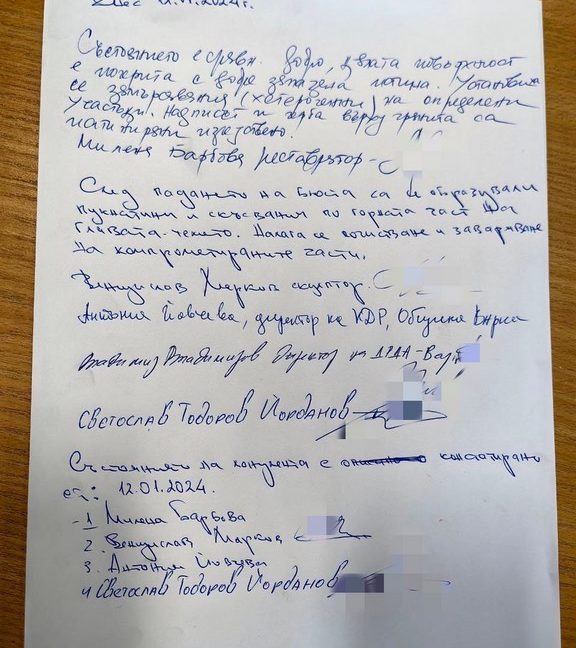 Днес 12.01.2024г.
Състоянието е сравн. добро, цялата повърхност
е покрита с добре запазена патина. Установиха
се замърсявания (хетерогенни) на определени
участъци. Надписът и герба върху гранита са
патинирани изкуствено.
Милена Барбова реставратор -
След падането на бюста са се образували
пукнатини и скъсвания по горната част на
главата - челото. Налага се почистване и заваряване
на компрометираните части.
Венцислав Марков скулптор.
Антония Йовчева, директор на КДР, Община Варна
Владимир Владимиров Директор на
Светослав Тодоров Йорданов
Състоянието на монумента е констатирано
от: 12.01.2024.
1 Милена Барбова
2. Венцислав Марков
3. Антония Йовчева
4 Светослав Тодоров Йорданов